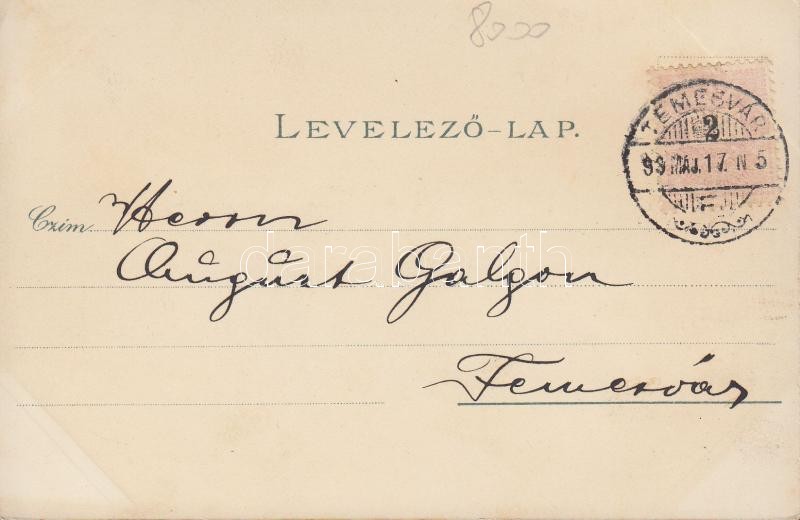 8000
LEVELEZŐ-LAP.
TEMESVÁR
2
99 MÁJ. 17. N 5
F
Czím. Herrn
August Galgon
darabanth.com
Temesvár